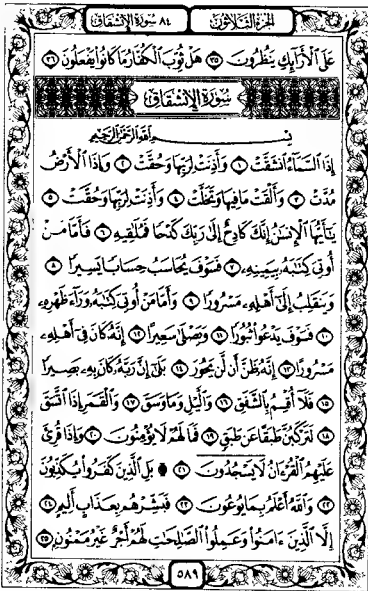 الجزء الثلاثون
٨٤ سورة الانشقاق
عَلَى ٱلْأَرَآئِكِ يَنظُرُونَ ٣٥ هَلْ ثُوِّبَ ٱلْكُفَّارُ مَا كَانُوا۟ يَفْعَلُونَ ٣٦
سورة الانشقاق
بِسْمِ ٱللَّهِ ٱلرَّحْمَٰنِ ٱلرَّحِيمِ
إِذَا ٱلسَّمَآءُ ٱنشَقَّتْ ١ وَأَذِنَتْ لِرَبِّهَا وَحُقَّتْ ٢ وَإِذَا ٱلْأَرْضُ
مُدَّتْ ٣ وَأَلْقَتْ مَا فِيهَا وَتَخَلَّتْ ٤ وَأَذِنَتْ لِرَبِّهَا وَحُقَّتْ ٥
يَٰٓأَيُّهَا ٱلْإِنسَٰنُ إِنَّكَ كَادِحٌ إِلَىٰ رَبِّكَ كَدْحًا فَمُلَٰقِيهِ ٦ فَأَمَّا مَنْ
أُوتِىَ كِتَٰبَهُۥ بِيَمِينِهِۦ ٧ فَسَوْفَ يُحَاسَبُ حِسَابًا يَسِيرًا ٨
وَيَنقَلِبُ إِلَىٰٓ أَهْلِهِۦ مَسْرُورًا ٩ وَأَمَّا مَنْ أُوتِىَ كِتَٰبَهُۥ وَرَآءَ ظَهْرِهِۦ
١٠ فَسَوْفَ يَدْعُوا۟ ثُبُورًا ١١ وَيَصْلَىٰ سَعِيرًا ١٢ إِنَّهُۥ كَانَ فِىٓ أَهْلِهِۦ
مَسْرُورًا ١٣ إِنَّهُۥ ظَنَّ أَن لَّن يَحُورَ ١٤ بَلَىٰٓ إِنَّ رَبَّهُۥ كَانَ بِهِۦ بَصِيرًا
١٥ فَلَآ أُقْسِمُ بِٱلشَّفَقِ ١٦ وَٱلَّيْلِ وَمَا وَسَقَ ١٧ وَٱلْقَمَرِ إِذَا ٱتَّسَقَ
١٨ لَتَرْكَبُنَّ طَبَقًا عَن طَبَقٍ ١٩ فَمَا لَهُمْ لَا يُؤْمِنُونَ ٢٠ وَإِذَا قُرِئَ
عَلَيْهِمُ ٱلْقُرْءَانُ لَا يَسْجُدُونَ ٢١ بَلِ ٱلَّذِينَ كَفَرُوا۟ يُكَذِّبُونَ
٢٢ وَٱللَّهُ أَعْلَمُ بِمَا يُوعُونَ ٢٣ فَبَشِّرْهُم بِعَذَابٍ أَلِيمٍ ٢٤
إِلَّا ٱلَّذِينَ ءَامَنُوا۟ وَعَمِلُوا۟ ٱلصَّٰلِحَٰتِ لَهُمْ أَجْرٌ غَيْرُ مَمْنُونٍ ٢٥
٥٨٩